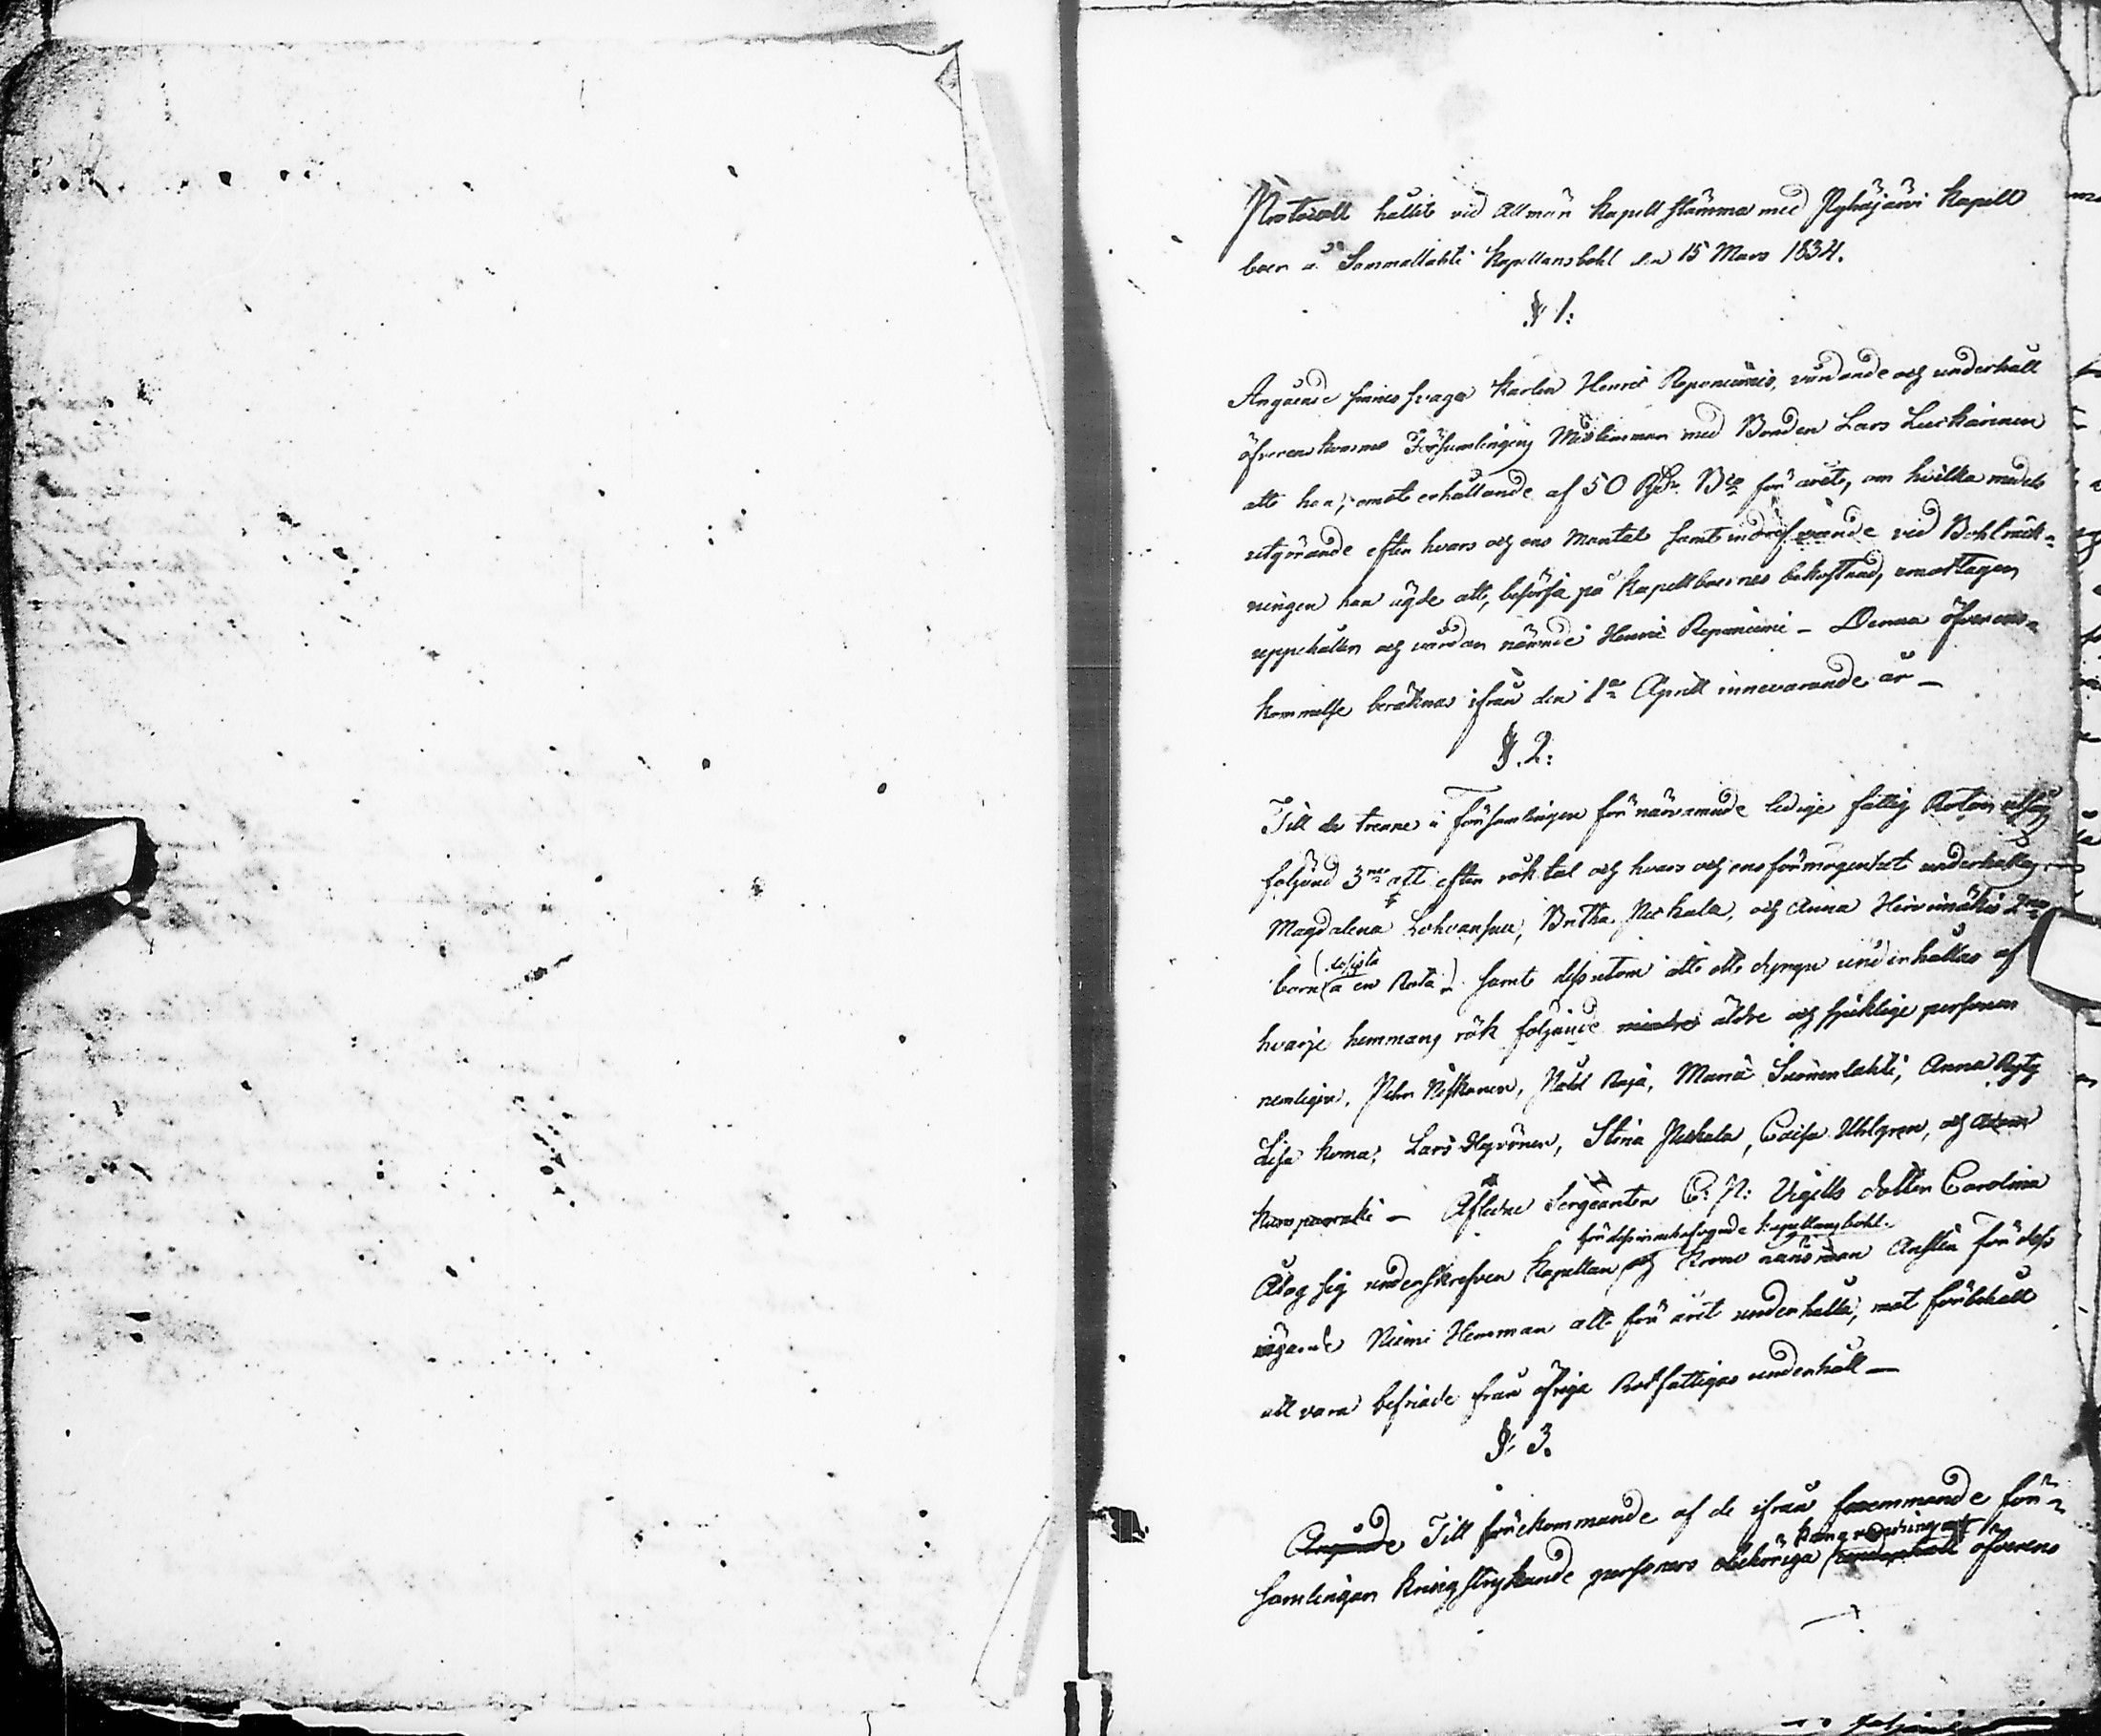 Protocoll hållit vid Allmän Kapell stämma med Pyhäjärvi Kapell
boer å Sammallahti Kapellansbohl den 15 Mars 1834.
§ 1:
Angående sinnes svaga Karlen Henric Reponiemis, vårdande och underhåll
öfverenskommo Församlingens Medlemmar med Bonden Lars Leskinen
att han, emot erhållande af 50 Rdr Bco för året, om hvilka medels
utgörande efter hvars och ens Mantal samt indrefvande vid Bohlräk-
ningen han ägde att, besörja på Kapellboernes bekostnad, emottagen
uppehåller och vårdar nämnde Henric Reponiemi – Denna öfverens-
kommelse beräknas ifrån den 1a Aprill innevarande år –
§. 2:
Till de trenne i församlingen för närvarande ledige fattig Rotar
följande 3ne att efter röktal och hvars och ens förmögenhet underhållas
Magdalena Lohvansuu, Britha Niskala, och Anna Hirvimäkis 2ne
barn (a en Rota) samt dessutom att underhållas af
hvarje hemmans rök följande mindre äldre och sjuklige personer
nemligen. Pehr Niskanen, Påhl Raja, Maria Suonenlahti, Anna Ryty
Lisa Koma, Lars Hyvönen, Stina Niskala, Caisa Uhlgren, och
– Aflidne Sergeanten C: N: Vigells dotter Carolina
för dess innehafvande kapellansbohl
Åtog sig underskrefven Kapellan och Krono länsman Ahsten för dess
ägande Niemi Hemman att för året underhålla, mot förbehåll
att vara befriade från öfriga Rotfattigas underhåll –
§. 3.
Angånde Till förekommande af de ifrån fremmande för-
kringvandring
samlingar kringstrykande personers obehöriga underhåll öfverens